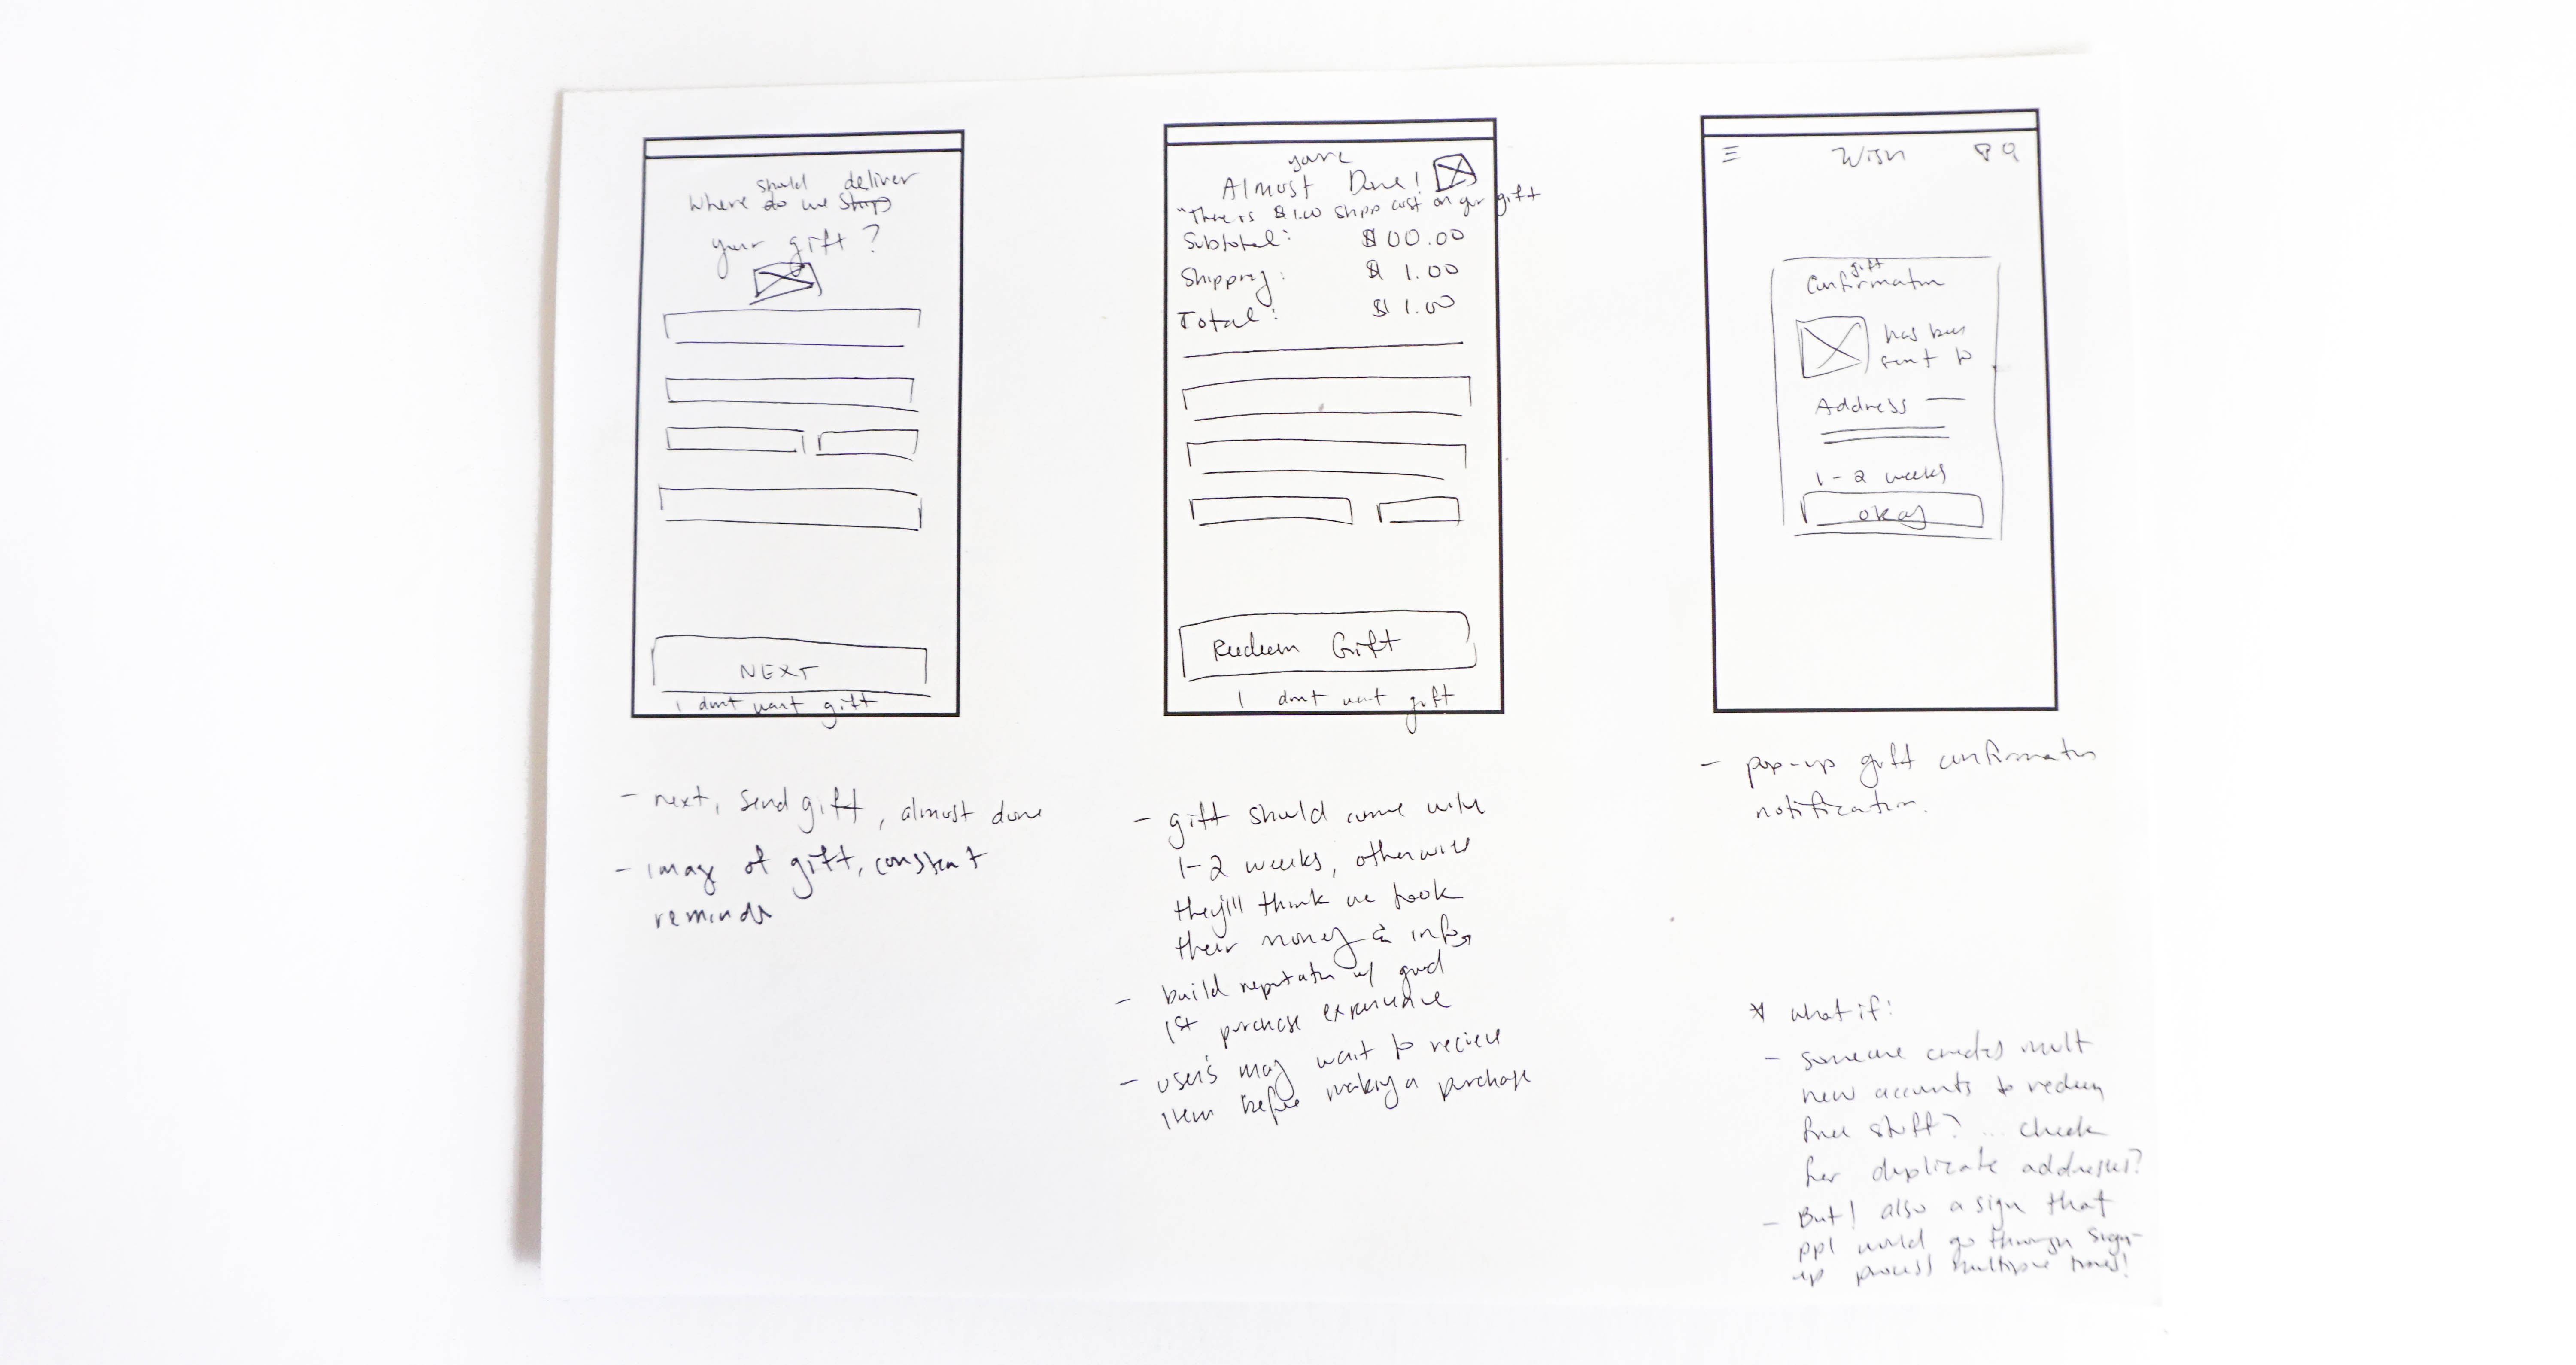 should deliver
Where do we ship
your gift?
NEXT
I dont want gift
- next, send gift, almost done
- image of gift, constant
reminder
you're
Almost Done!
"There is $1.00 shipp cost on your gift
Subtotal: $00.00
Shipping: $1.00
Total: $1.00
Redeem Gift
I dont want gift
- gift should come within
1-2 weeks, otherwise
they'll think we took
their money & info
- build reputation w/ good
1st purchase experience
- user's may wait to recieve
item before making a purchase
Wish
gift
Confirmation
has been
sent to
Address
1-2 weeks
okay
- pop-up gift confirmation
notification.
* what if:
- someone creates mult
new accounts to redeem
free stuff? ... check
for duplicate addresses?
- But! also a sign that
ppl would go through sign-
up process multiple times!